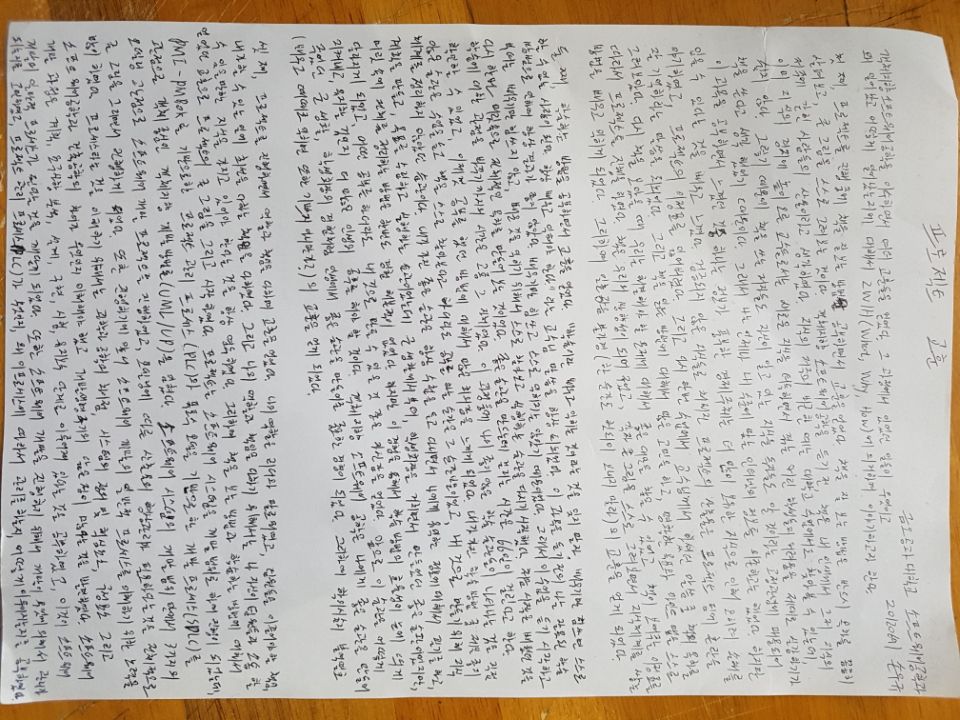 프로젝트 교훈
금오공과 대학교 소프트웨어공학과
객체지향 소프트웨어공학을 이수하면서 여러 교훈들을 얻었다. 그 과정에서 있었던 일들이 무엇이고
왜 일어났고 어떻게 일어났는지에 대해서 2W1H(What, Why, How)에 의거하여 이야기하고자 한다.
첫 째, 프로젝트를 진행 중에 책을 잘 보는 방법을 공부하면서 교훈을 얻었다. 책을 잘 보는 방법은 반드시 목차를 꼼꼼히
살펴보고, 큰 그림을 스스로 그려보는 것이다. 객체지향 소프트웨어공학을 듣기 전, 책은 내 인생에서 그저 지식의
저주에 갇힌 사람들의 산물이라고 생각하였다. 지식의 저주의 비근한 예는 대학교 수업에서도 찾아볼 수 있는데,
이미 지식의 경지에 높이 오른 교수들로서는 새로운 지식을 터득하면서 겪는 어린 학생들의 어려움을 제대로 실감하기가
쉽지 않다. 그렇기 때문에 책을 쓰는 저자들도 자신이 알고 있는 지식을 독자들도 알 것이라는 고정관념에 매몰되어
책을 쓴다고 생각 했었기 때문이다. 그래서 나는 언제나 내 수준에 맞는 인터넷의 정보를 의존하고는 했었다. 하지만
이 과목을 공부하면서 느꼈던 것 하나는 정보가 풍부한 경제주체는 더 많이 보유한 지식으로 인해 오히려 손해를
입을 수 있다는 것을 배우고 느꼈다. 검증되지 않은 지식들로 채워진 프로젝트의 산출물은 프로젝트 팀에 혼란을
야기하였고, 프로젝트의 이정표를 잃어버렸다. 그리고 다시 한번 수업에서 교수님께서 하셨던 말씀 중 책의 목차를
잘 기억하라는 말씀을 되뇌었다. 그리고 책을 읽는 방법에 대해서 많은 고민을 하고, 명확한 목표와 마인드 맵을 스스로
그려보았다. 다시 책을 보았을 때 우리는 해결해야 할 문제에 대해서 좋은 대안을 찾을 수 있었고 책이 보여주는 이정표를
따라서 프로젝트를 진행을 하였다. 책은 우리의 방향성이 되어 주었고, 각자 큰 그림을 스스로 그려보면서 지식체계를 쌓는
방법을 배우고 익히게 되었다. 그리하여 일촌광음 불가경(한 순간도 헛되이 보내지 마라)의 교훈을 얻게 되었다.
둘 째, 학습하는 방법을 공부하면서 교훈을 얻었다. "학습이란 배우고 익히는 것이라는 것을 잊지 말자. 배우기만 힘쓰면 스스로
할 수 없는 사람이 된다. 항상 배우고 익혀야 한다"라는 교수님 말씀을 항상 되뇌었다. 이 과목을 듣기 전의 나는 잘못된 학습
방법으로 인하여 항상 결과가 좋지 않았다. 배우기만 힘쓰고 스스로 익히지는 않았기 때문이었다. 그래서 이 수업을 듣기 시작하고
부터는 배우기만 힘쓰지 않고, 배운 것을 익히기 위해서 스스로 찾아보고 실행하는 습관을 다시 시작했다.
좋은 습관을 만드는데 걸리는 시간은 66일이 걸린다고 한다.
학습에 대한 과정을 바꾸기까지의 시간은 고통 그 자체였다. 이 과정 중에 나의 좋지 않은 학습 습관들이 나타나는 것을 직접
확인할 수 있었고, 이제껏 공부를 했던 방법에 대해서 많은 회의감을 느끼게 되었다. 내가 가진 학습 방법 중 제일 좋지
않은 습관은 수업을 듣고 책을 스스로 찾아본다고 하더라도 공부를 하는 순간은 그 순간뿐이었고, 내 것으로 만들기 위해 지식
체계를 정리하지 않았던 습관이다. 내가 가진 좋은 습관은 항상 수첩을 들고 다니면서 나에게 유익한 정보에 대해서 필기를 하고,
계획을 만들고, 목표를 수립하고 실행하는 습관이었는데 군 생활에서부터, 학생회장을 거치면서 만들었던 좋은 습관이었지만,
머릿 속에 전체를 정리하는 방법은 한번도 경험 해본적이 없었다. 하지만 이 경험을 통해서 학습 방법의 효율성이 눈에 띄게
달라지게 되었고, 어떤 공부를 하더라도 내 것으로 만들 수 있을 것 같은 자신감을 얻었다. 앞으로 이 습관을 어떻게
지켜내고, 유지할 것인지 더 많은 인생의 공부를 해야 할 것이다. 객체지향 소프트웨어 공학은 나에게 좋은 습관을 만들어
주었던 군 생활, 학생회장의 경험처럼 인생에서 좋은 습관을 만들어준 중요한 경험이 되었다. 그리하여 학이시습지 불역열호
(배우고 때때로 익히면 또한 기쁘지 아니한가?)의 교훈을 얻게 되었다.
셋 째, 프로젝트를 진행하면서 역할과 책임을 다하며 교훈을 얻었다. 나의 역할은 리더와 였고, 팀원들을 이끌어야할 책임,
내가 할 수 있는 일에 최선을 다하는 책임을 다하였다. 그리고 나의 역할과 책임을 다하기 위해서는 나 자신이 팀원들과 소통 할
수 있을만한 지식을 가지고 있어야 한다는 것을 항상 염두하였다. 그리하여 책을 보는 방법과 학습하는 방법에 대해서
얻었던 교훈으로 프로젝트의 큰 그림을 그리고 시작하였다. 프로젝트는 소프트웨어 시스템을 개발 범위로 하여 진행이 되었는데,
PMI-PMBOK를 기반으로한 프로젝트 관리 프로세스(PLC)와 폭포수 모델을 기반으로 한 개발 프로세스(SDLC)를
관점으로 객체 중심인 객체지향 개발방법론(UML/UP)을 택했다. 소프트웨어 시스템의 개발 범위 안에서 3가지의
모델링 관점으로 소프트웨어 개발 프로젝트를 진행하였고, 모델링에 따른 산출물의 형상관리가 필요하다는 것을 전체적으로
큰 그림을 그리면서 진행하게 되었다. 또한 진행하기에 앞서 소프트웨어 개발의 일반적 프로세스를 이해하기 위한 노력을
많이 하였다. 프로세스라는 것을 이해하기 위해서는 과학과 공학의 차이점, 시스템의 정의 및 핵심요소, 구성요소 그리고
소프트웨어공학과 건축공학의 차이가 무엇인지 이해해야 했고 개발생명주기의 닮은 점이 많다는 것을 발견하였다. 소프트웨어
개발 과정은 계획, 요구사항 분석, 설계, 구현, 시험, 유지보수 단계로 이루어져 있다는 것을 공부하였고, 이것이 소프트웨어
개발의 일반적 프로세스가 된다는 것을 깨닫게 되었다. 또한 소프트웨어 개발을 진행하기 위해서 개발이 무엇에 의해서 관리가
되는지를 고민하였고, 프로젝트 관리 프로세스(PLC)가 무엇인지, 왜 이 프로세스에 따라서 관리를 하는지, 어떻게 이루어지는지를 공부하였다.